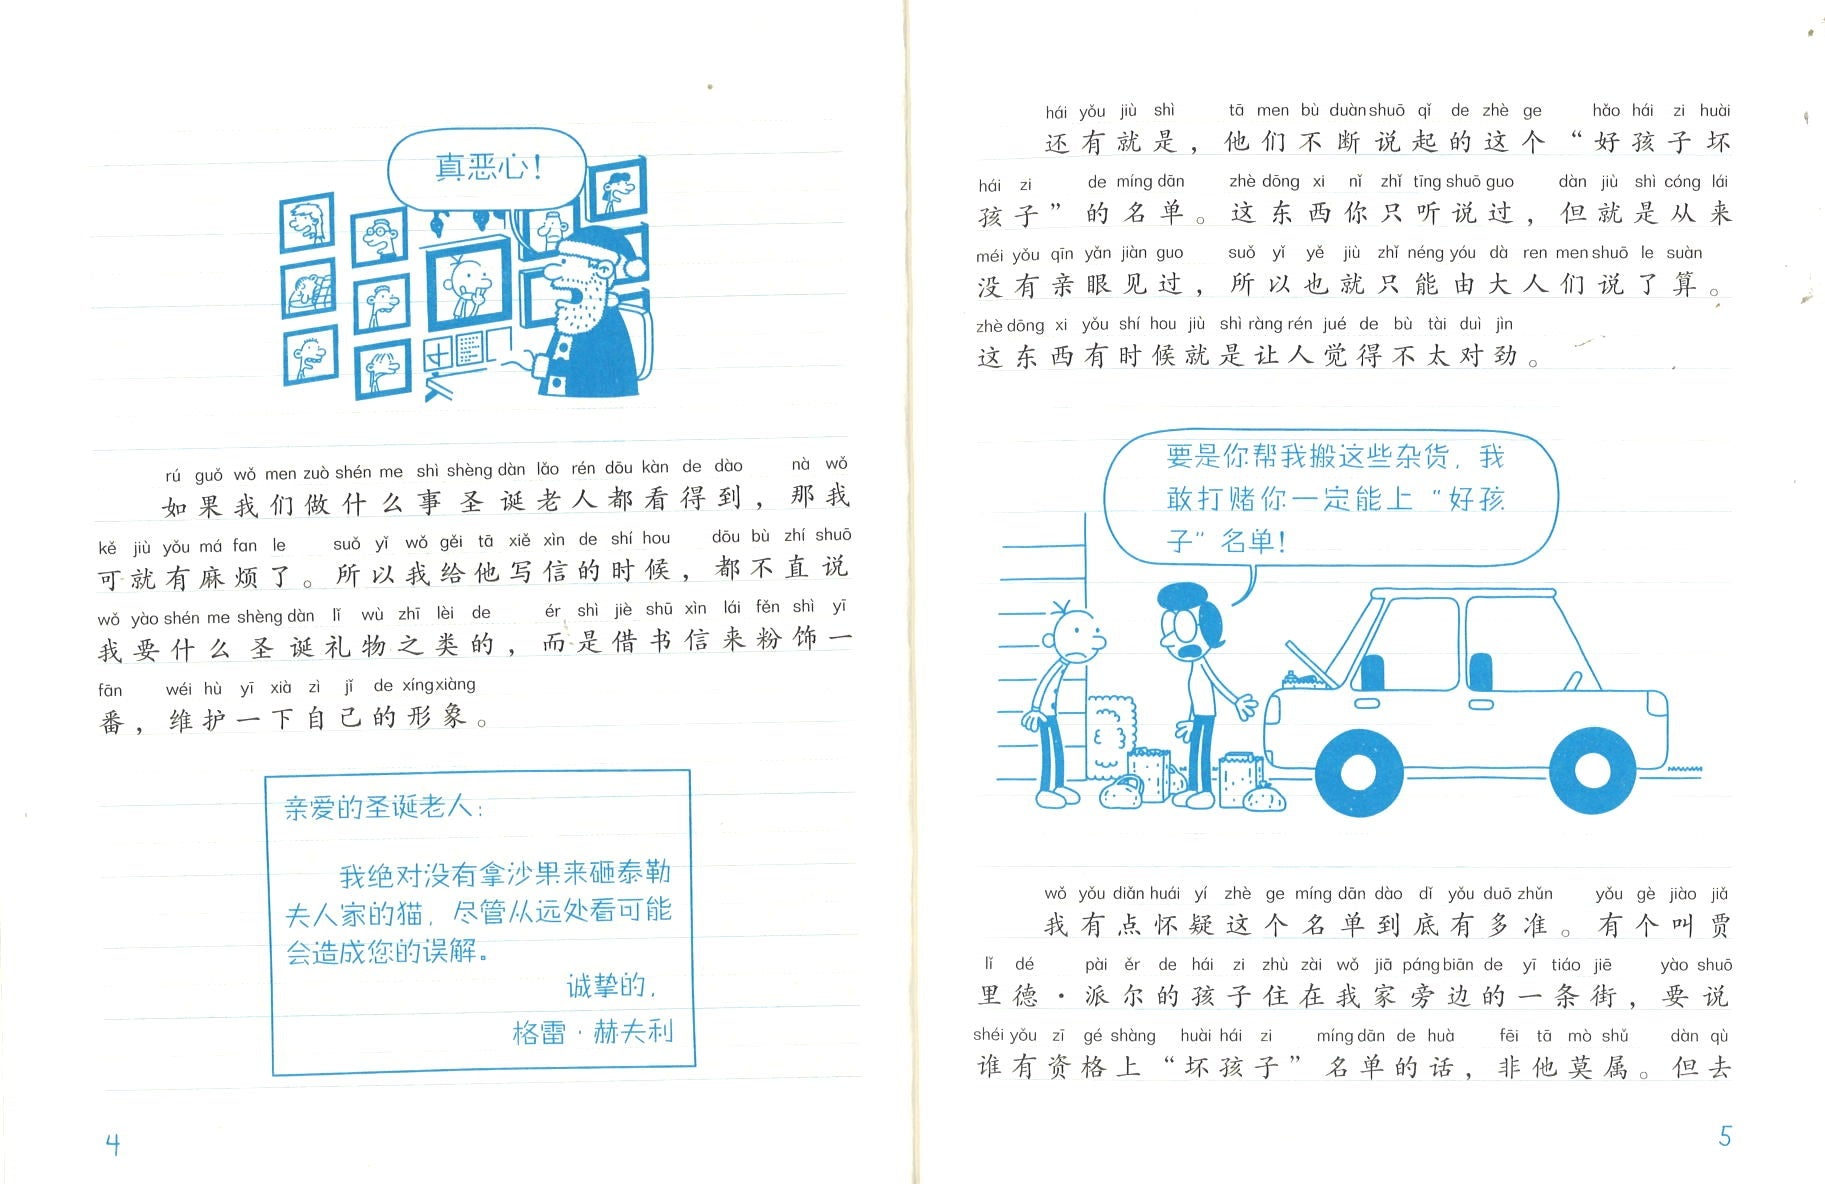 真恶心！
rú guǒ wǒ men zuò shén me shì shèng dàn lǎo rén dōu kàn de dào nà wǒ
如果我们做什么事圣诞老人都看得到，那我
kě jiù yǒu má fan le suǒ yǐ wǒ gěi tā xiě xìn de shí hou dōu bù zhí shuō
可就有麻烦了。所以我给他写信的时候，都不直说
wǒ yào shén me shèng dàn lǐ wù zhī lèi de ér shì jiè shū xìn lái fěn shì yī
我要什么圣诞礼物之类的，而是借书信来粉饰一
fān wéi hù yī xià zì jǐ de xíng xiàng
番，维护一下自己的形象。
亲爱的圣诞老人：
我绝对没有拿沙果来砸泰勒
夫人家的猫，尽管从远处看可能
会造成您的误解。
诚挚的，
格雷·赫夫利
4
hái yǒu jiù shì tā men bù duàn shuō qǐ de zhè ge hǎo hái zi huài
还有就是，他们不断说起的这个“好孩子坏
hái zi de míng dān zhè dōng xi nǐ zhǐ tīng shuō guo dàn jiù shì cóng lái
孩子”的名单。这东西你只听说过，但就是从来
méi yǒu qīn yǎn jiàn guo suǒ yǐ yě jiù zhǐ néng yóu dà ren men shuō le suàn
没有亲眼见过，所以也就只能由大人们说了算。
zhè dōng xi yǒu shí hou jiù shì ràng rén jué de bù tài duì jìn
这东西有时候就是让人觉得不太对劲。
要是你帮我搬这些杂货，我
敢打赌你一定能上“好孩
子”名单！
wǒ yǒu diǎn huái yí zhè ge míng dān dào dǐ yǒu duō zhǔn yǒu gè jiào jiǎ
我有点怀疑这个名单到底有多准。有个叫贾
lǐ dé pài ěr de hái zi zhù zài wǒ jiā páng biān de yī tiáo jiē yào shuō
里德·派尔的孩子住在我家旁边的一条街，要说
shéi yǒu zī gé shàng huài hái zi míng dān de huà fēi tā mò shǔ dàn qù
谁有资格上“坏孩子”名单的话，非他莫属。但去
5